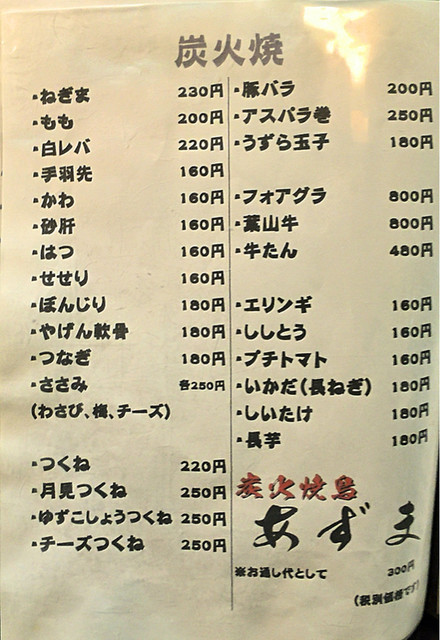 炭火焼
・ねぎま 230円
・もも 200円
・白レバ 220円
・手羽先 160円
・かわ 160円
・砂肝 160円
・はつ 160円
・せせり 160円
・ぼんじり 180円
・やげん軟骨 180円
・つなぎ 180円
・ささみ 各250円
(わさび、梅、チーズ)
・つくね 220円
・月見つくね 250円
・ゆずこしょうつくね 250円
・チーズつくね 250円
・豚バラ 200円
・アスパラ巻 250円
・うずら玉子 180円
・フォアグラ 800円
・葉山牛 800円
・牛たん 480円
・エリンギ 160円
・ししとう 160円
・プチトマト 160円
・いかだ(長ねぎ) 180円
・しいたけ 180円
・長芋 180円
炭火焼鳥
あずま
※お通し代として 300円
(税別価格です)